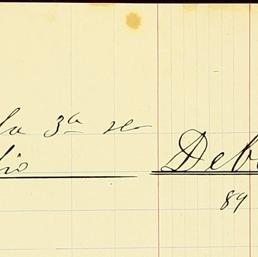 la 3ª se
lio Deb
89